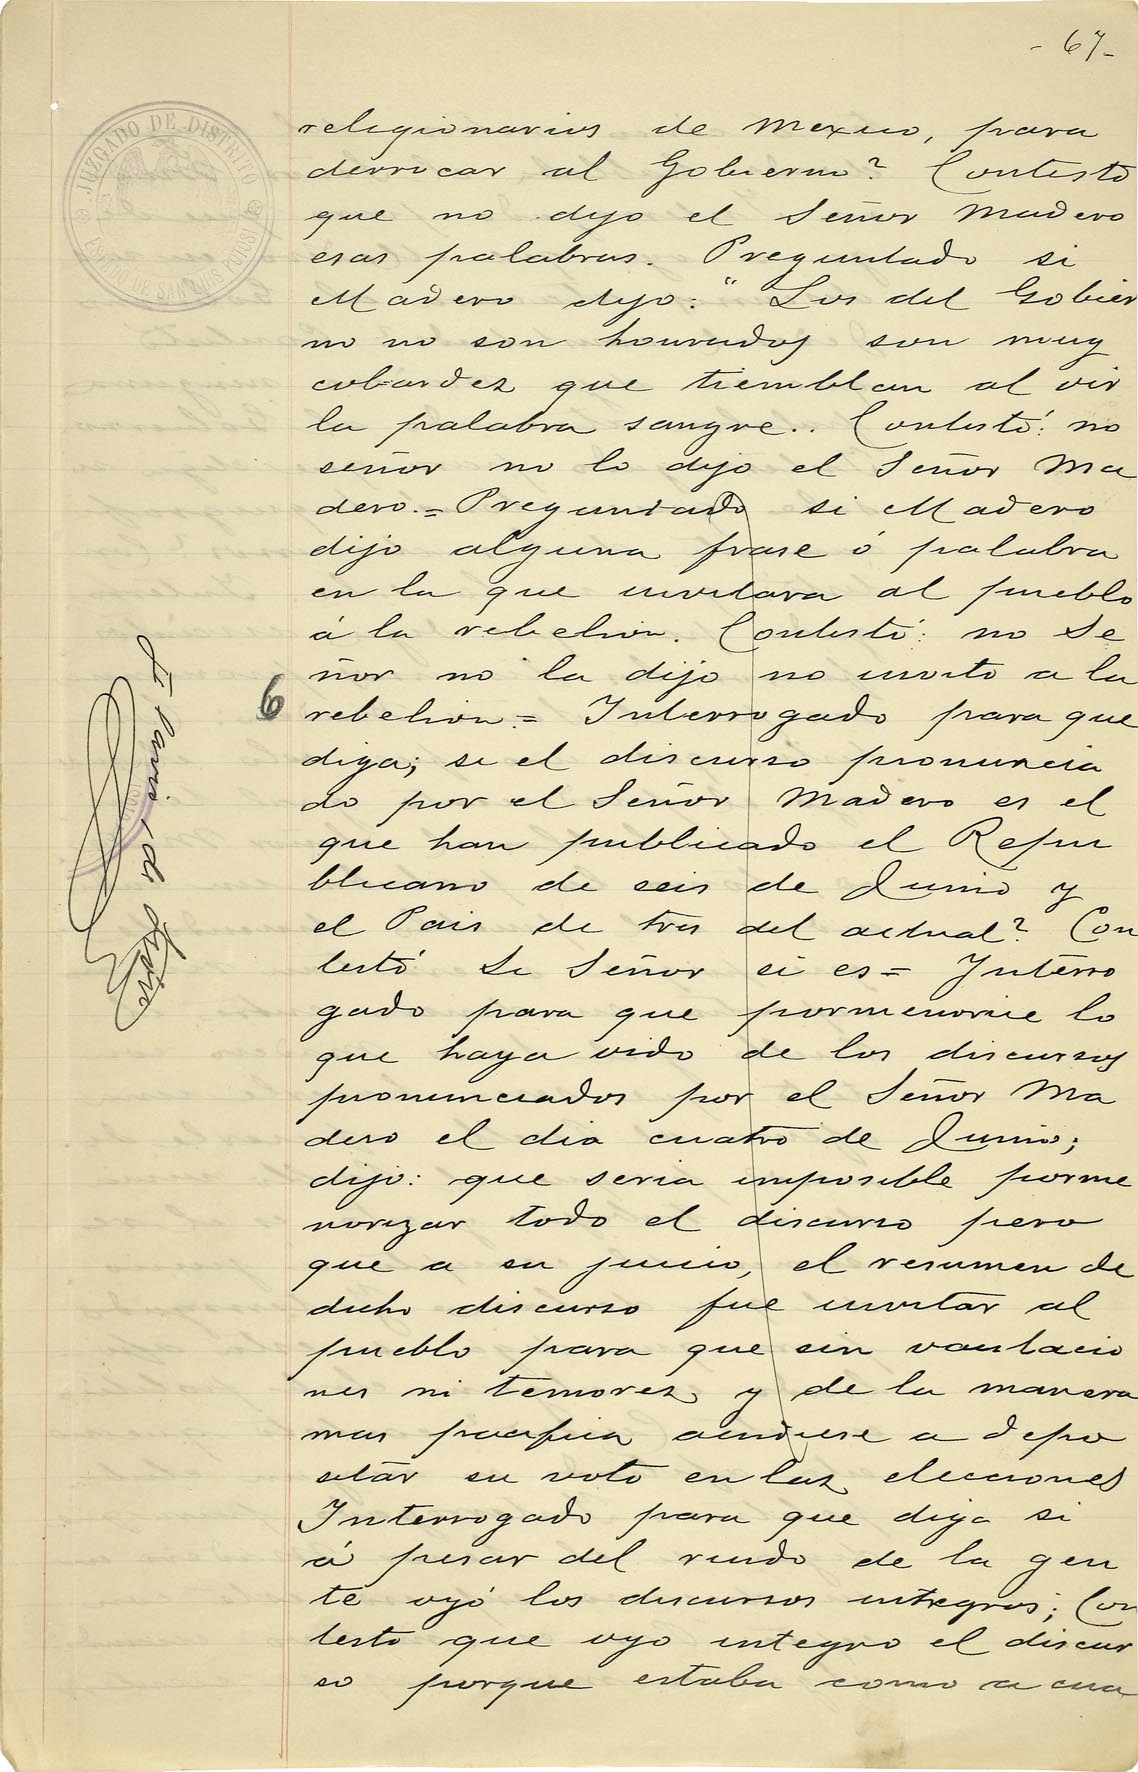 - 67-
JUZGADO DE DISTRITO
ESTADO DE SAN LUIS POTOSI
religionarios de Mexico, para
derrocar al Gobierno? Contestó
que no dijo el Señor Madero
esas palabras. Preguntado si
Madero dijo: "Los del Gobier
no no son honrados son muy
cobardes que tiemblan al oir
la palabra sangre.. Contestó: no
señor no lo dijo el Señor Ma
dero.= Preguntado si Madero
dijo alguna frase ó palabra
en la que invitara al pueblo
á la rebelion. Contestó: no Se
ñor no la dijo no invito a la
6 rebelion= Interrogado para que
diga; si el discurso pronuncia
do por el Señor Madero es el
que han publicado el Repu
blicano de seis de Junio y
el Pais de tres del actual? Con
testó Si Señor si es= Interro
gado para que pormenorice lo
que haya oido de los discursos
pronunciados por el Señor Ma
dero el dia cuatro de Junio;
dijo: que seria imposible porme
norizar todo el discurso pero
que a su juicio, el resumen de
dicho discurso fue invitar al
pueblo para que sin vacilacio
nes ni temores y de la manera
mas pacifica acudiese a depo
sitar su voto en las elecciones
Interrogado para que diga si
á pesar del ruido de la gen
te oyó los discursos integros; Con
testo que oyo integro el discur
so porque estaba como a cua